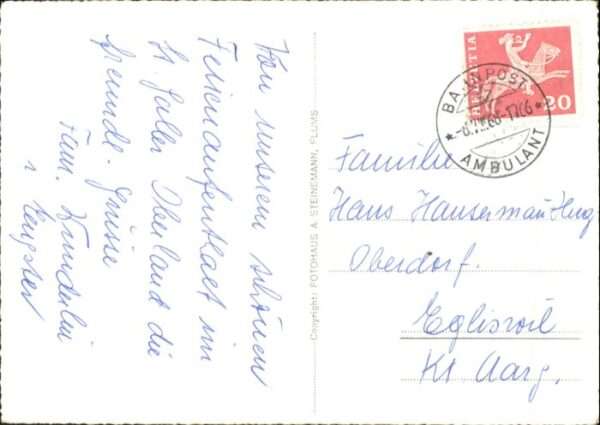 Von unserem schönen
Ferienaufenthalt im
St. Galler Oberland die
Freunde. Grüsse
Fam.
Copyright: FOTOHAUS A STEINEMANN, FLUMS
HELVETIA
20
BAHNPOST
AMBULANT
Familie
Hans Hausermann Hug
Oberdorf.
Egliswil
Kt. Aarg.